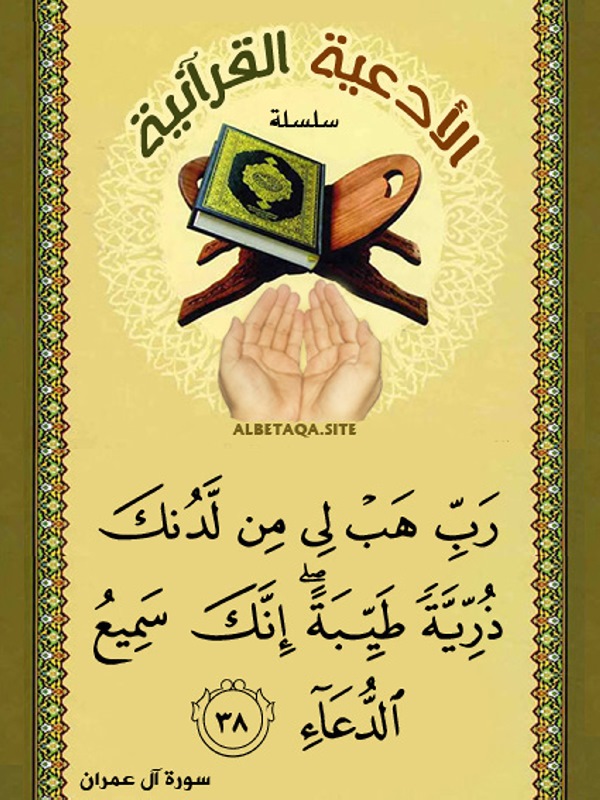 الأدعية القرآنية
سلسلة
ALBETAQA.SITE
رَبِّ هَبْ لِى مِن لَّدُنكَ
ذُرِّيَّةً طَيِّبَةً ۖ إِنَّكَ سَمِيعُ
ٱلدُّعَآءِ ٣٨
سورة آل عمران